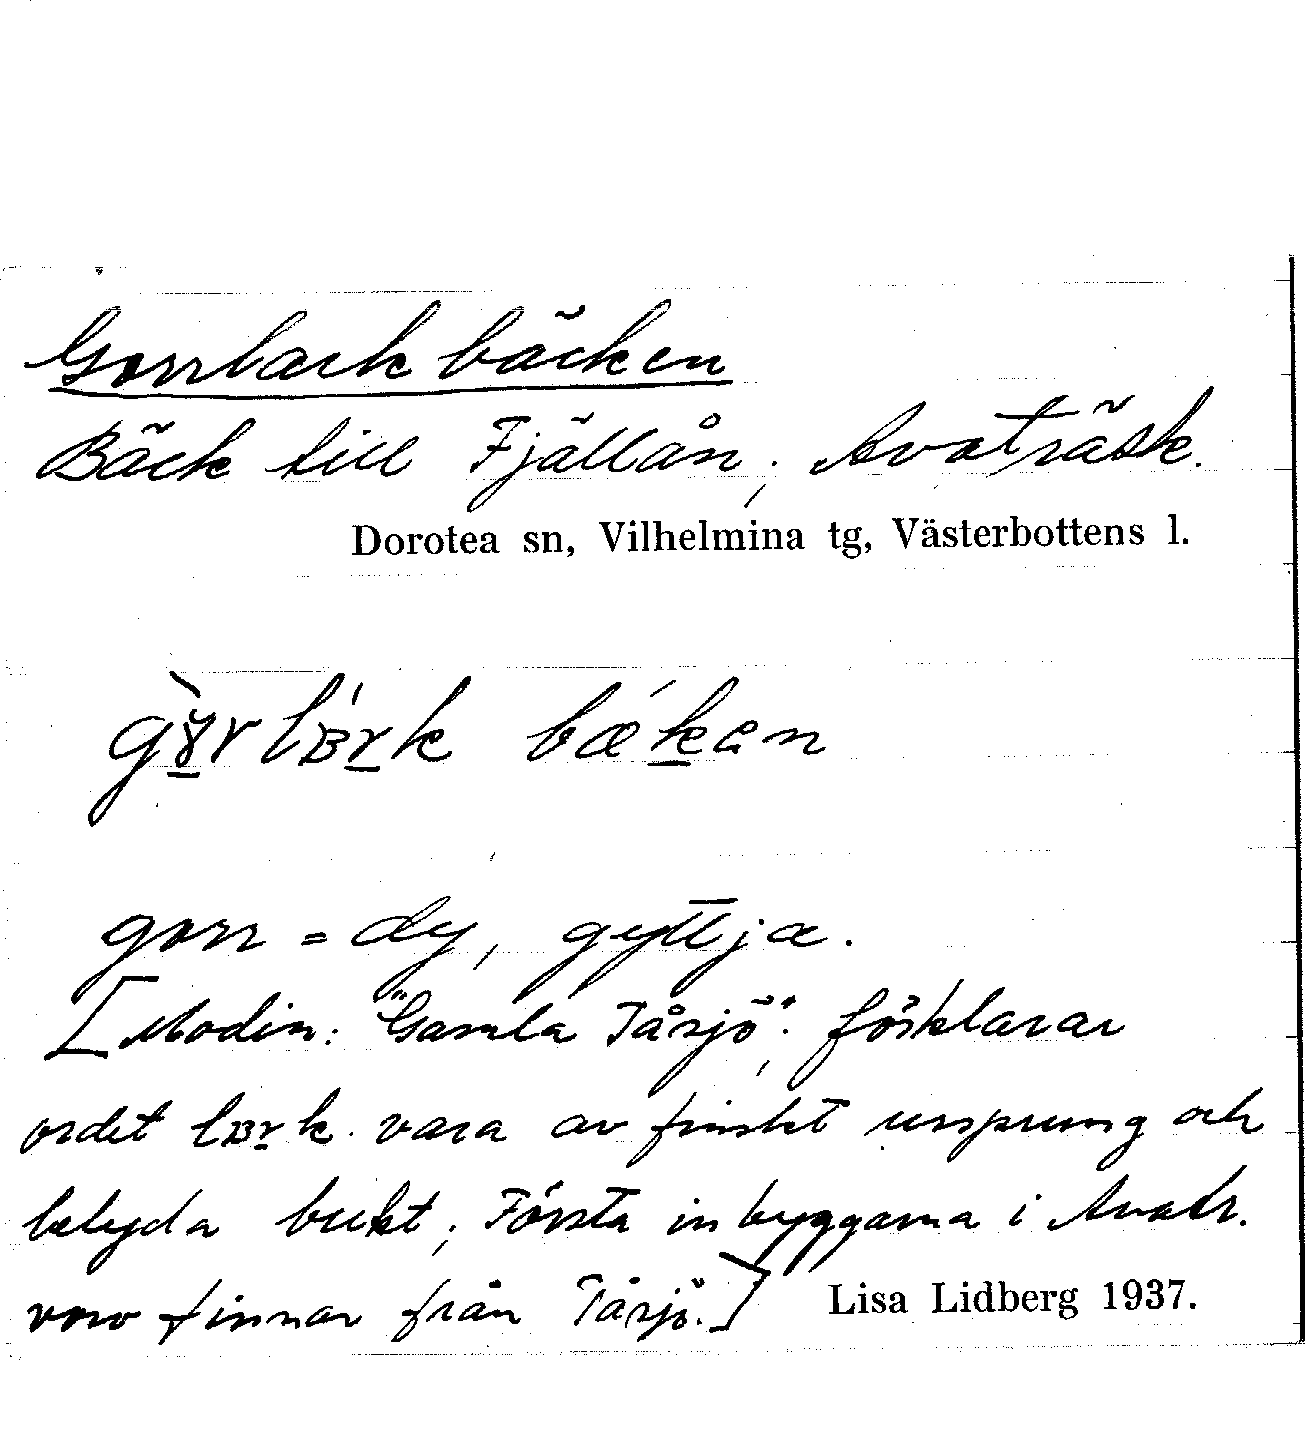 Gorrlack bäcken
Bäck till Fjällån; Avaträsk.
Dorotea sn, Vilhelmina tg, Västerbottens l.
bækan
gorr = dy, gyttja.
[Modin: "Gamla Tåsjö"; förklarar
ordet vara av finskt ursprung och
betyda bukt; Första inbyggarna i Avatr.
voro finnar från Tåsjö.] Lisa Lidberg 1937.